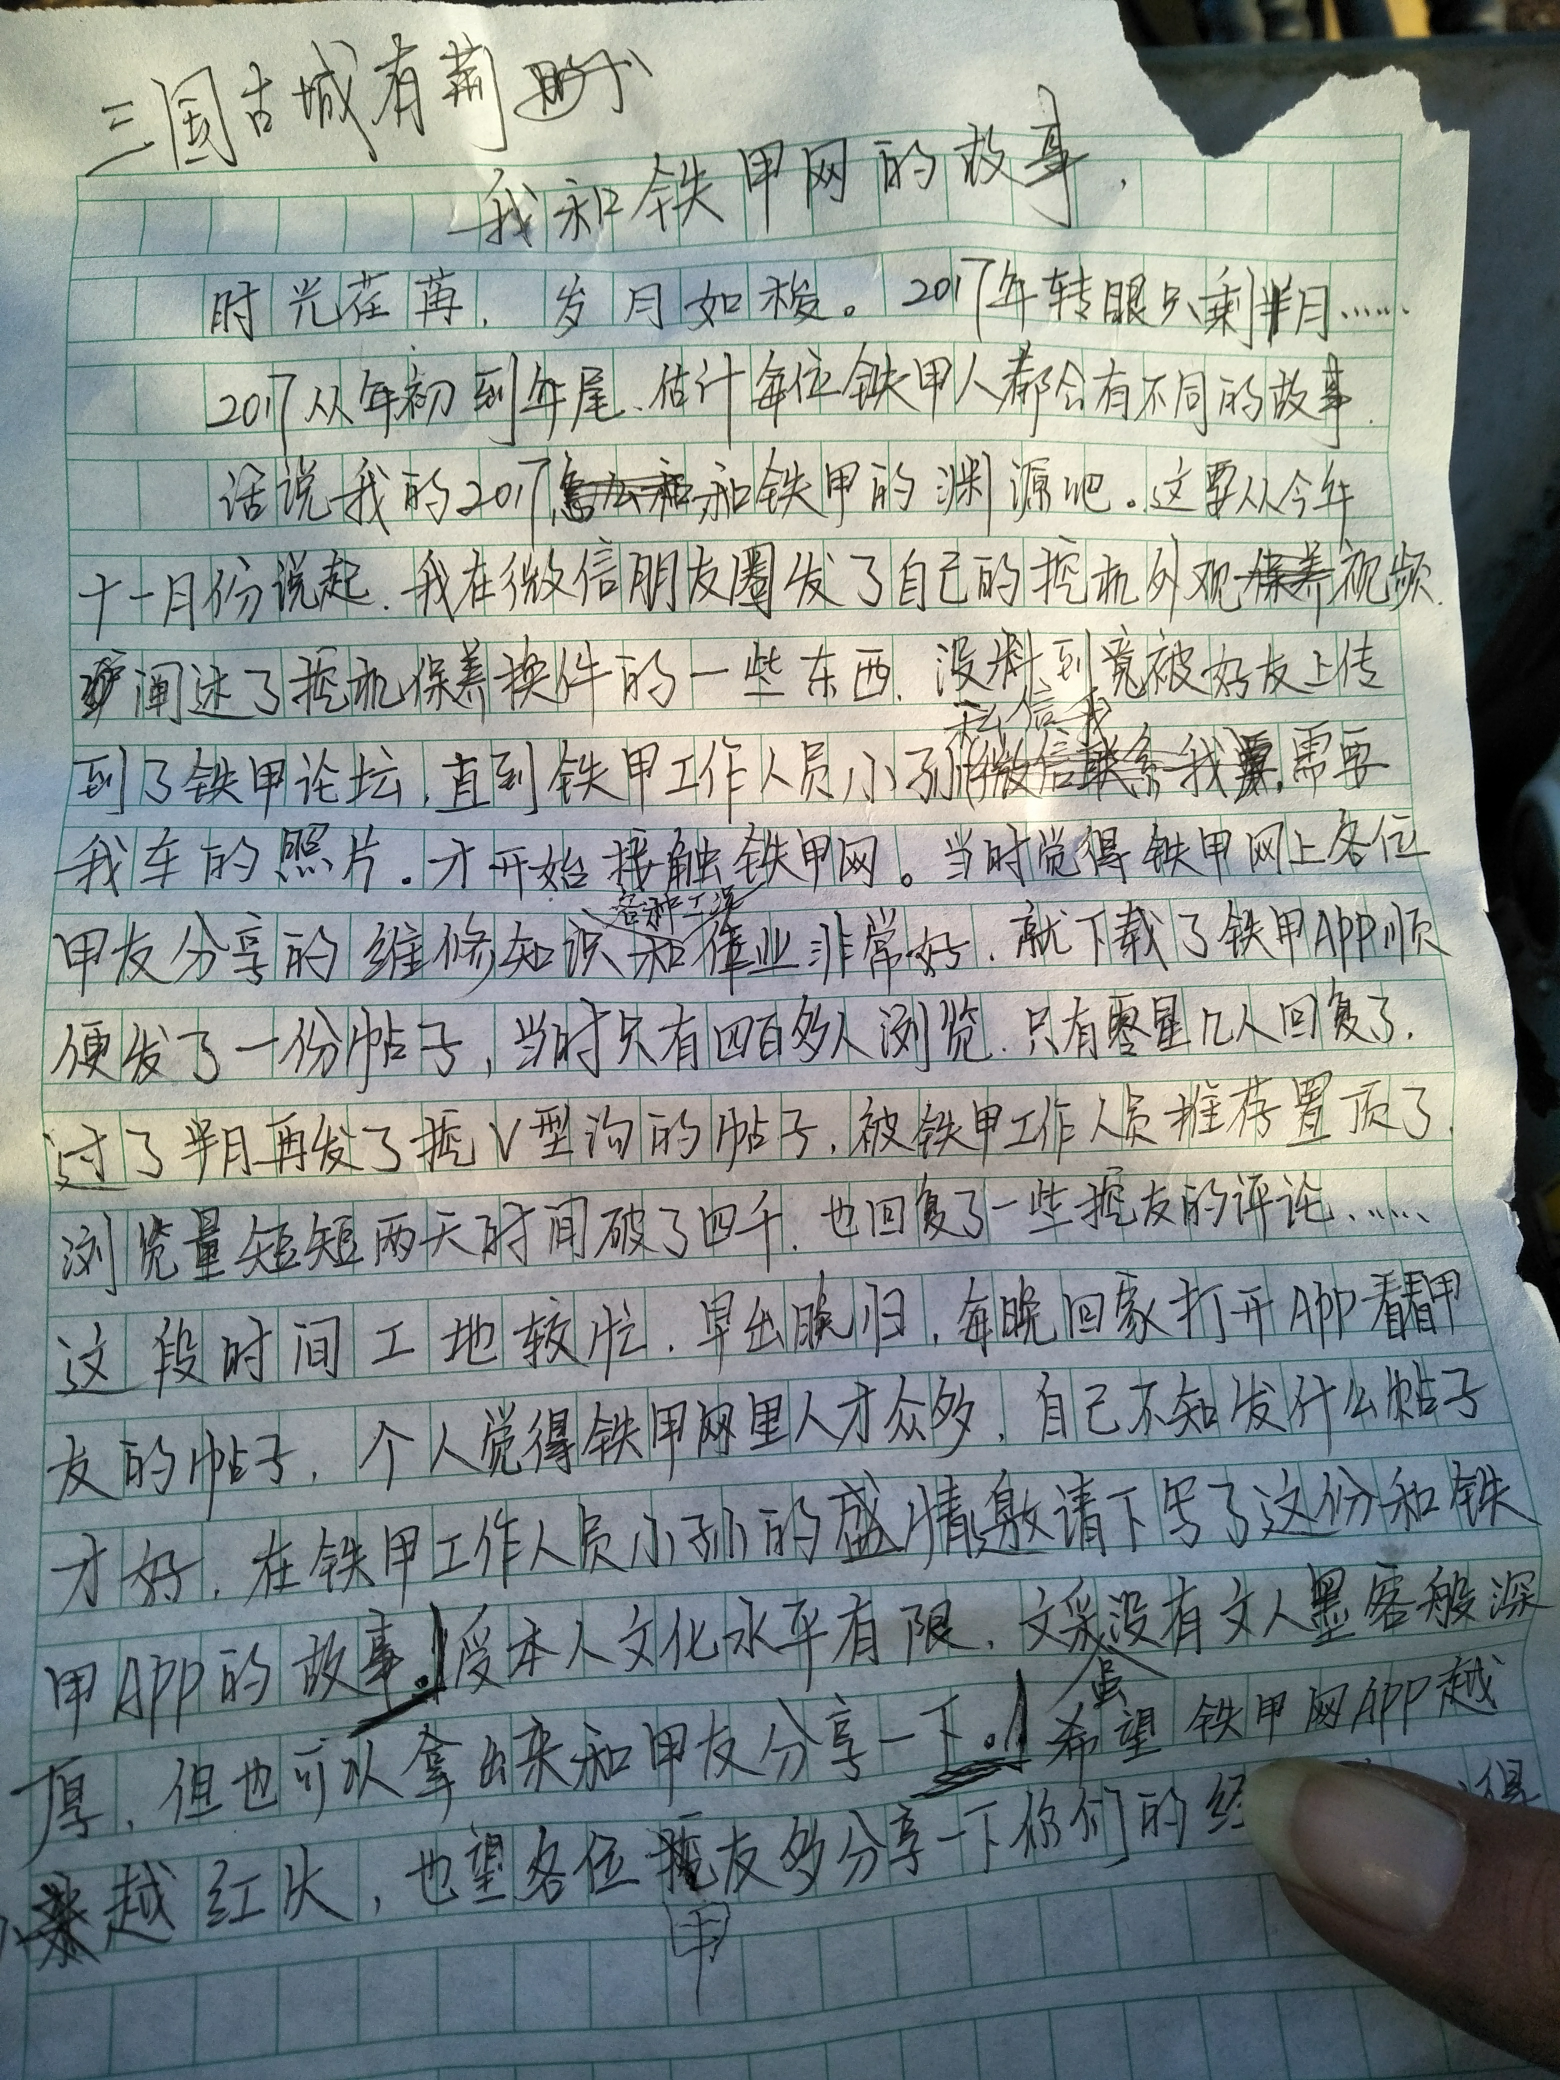 三国古城有荆
我和铁甲网的故事.
时光荏苒.岁月如梭。2017年转眼只剩半月……
2017从年初到年尾、估计每位铁甲人都会有不同的故事.
话说我的2017和铁甲的渊源吧。这要从今年
十一月份说起.我在微信朋友圈发了自己的挖机外观视频.
阐述了挖机保养换件的一些东西.没料到竟被好友上传
私信我
到了铁甲论坛.直到铁甲工作人员小孙需要
我车的照片。才开始接触铁甲网。当时觉得铁甲网上各位
各种工况
甲友分享的维修知识和作业非常好.就下载了铁甲APP顺
便发了一份帖子,当时只有四百多人浏览.只有零星几人回复了.
过了半月再发了挖V型沟的帖子.被铁甲工作人员推荐置顶了.
浏览量短短两天时间破了四千.也回复了一些挖友的评论……
这段时间工地较忙.早出晚归.每晚回家打开APP看看甲
友的帖子.个人觉得铁甲网里人才众多.自己不知发什么帖子
才好.在铁甲工作人员小孙的盛情邀请下写了这份和铁
甲APP的故事.!受本人文化水平有限.文采没有文人墨客般深
虽
厚.但也可以拿出来和甲友分享一下.!希望铁甲网APP越
越红火,也望各位友多分享一下你们的经得
甲